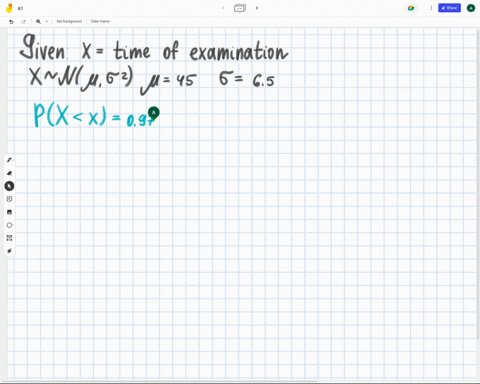 61
Set background
Clear frame
Share
Given X = time of examination
X ~ N(μ, σ²) μ = 45 σ = 6.5
P(X < x) = 0.97